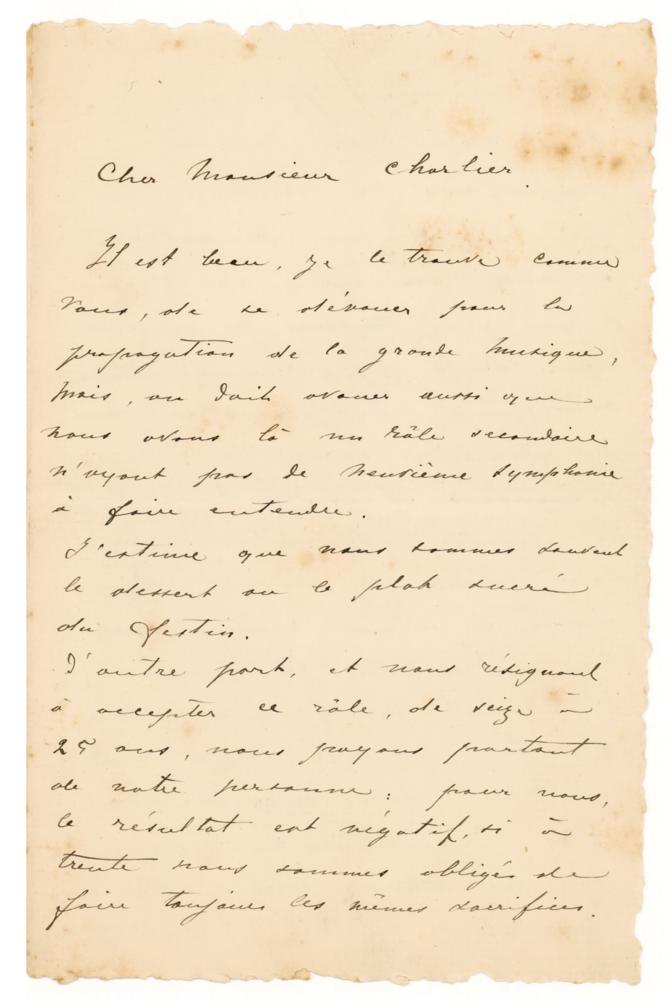 Cher Monsieur Charlier.
Il est beau, je le trouve comme
vous, de se dévouer pour la
propagation de la grande musique,
mais, on doit avouer aussi que
nous avons là un rôle secondaire
n'ayant pas de neuvième symphonie
à faire entendre.
J'estime que nous sommes souvent
le dessert ou le plat sucré
du festin.
D'autre part, et nous résignant
à accepter ce rôle, de seize à
25 ans, nous payons partout
de notre personne : pour nous,
le résultat est négatif, si à
trente nous sommes obligés de
faire toujours les mêmes sacrifices.